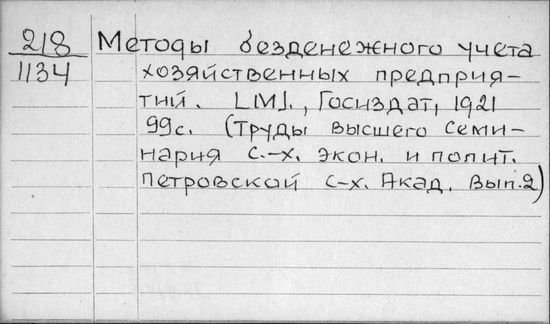 218 Методы безденежного учета
1134 хозяйственных предприя-
тий. [М]., Госиздат, 1921
99с. (Труды высшего семи-
нария с.-х. экон. и полит.
Петровской с-х. Акад. Вып.2)